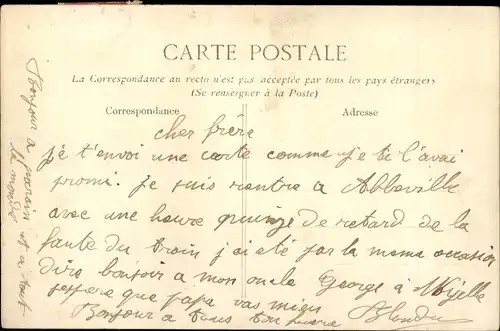 CARTE POSTALE
La Correspondance au recto n'est pas acceptée par tous les pays étrangers
(Se renseigner à la Poste)
Correspondance
Adresse
cher frère
je t'envoi une carte comme je te l'avai
promi. je suis rentre a Abbeville
avec une heure quinze de retard de la
faute du train j'ai été par la meme occasion
dire bonjoir a mon oncle George à
j'espere que papa vas mieu
Bonjour a tous ton
Bonjour a et a tout
le monde